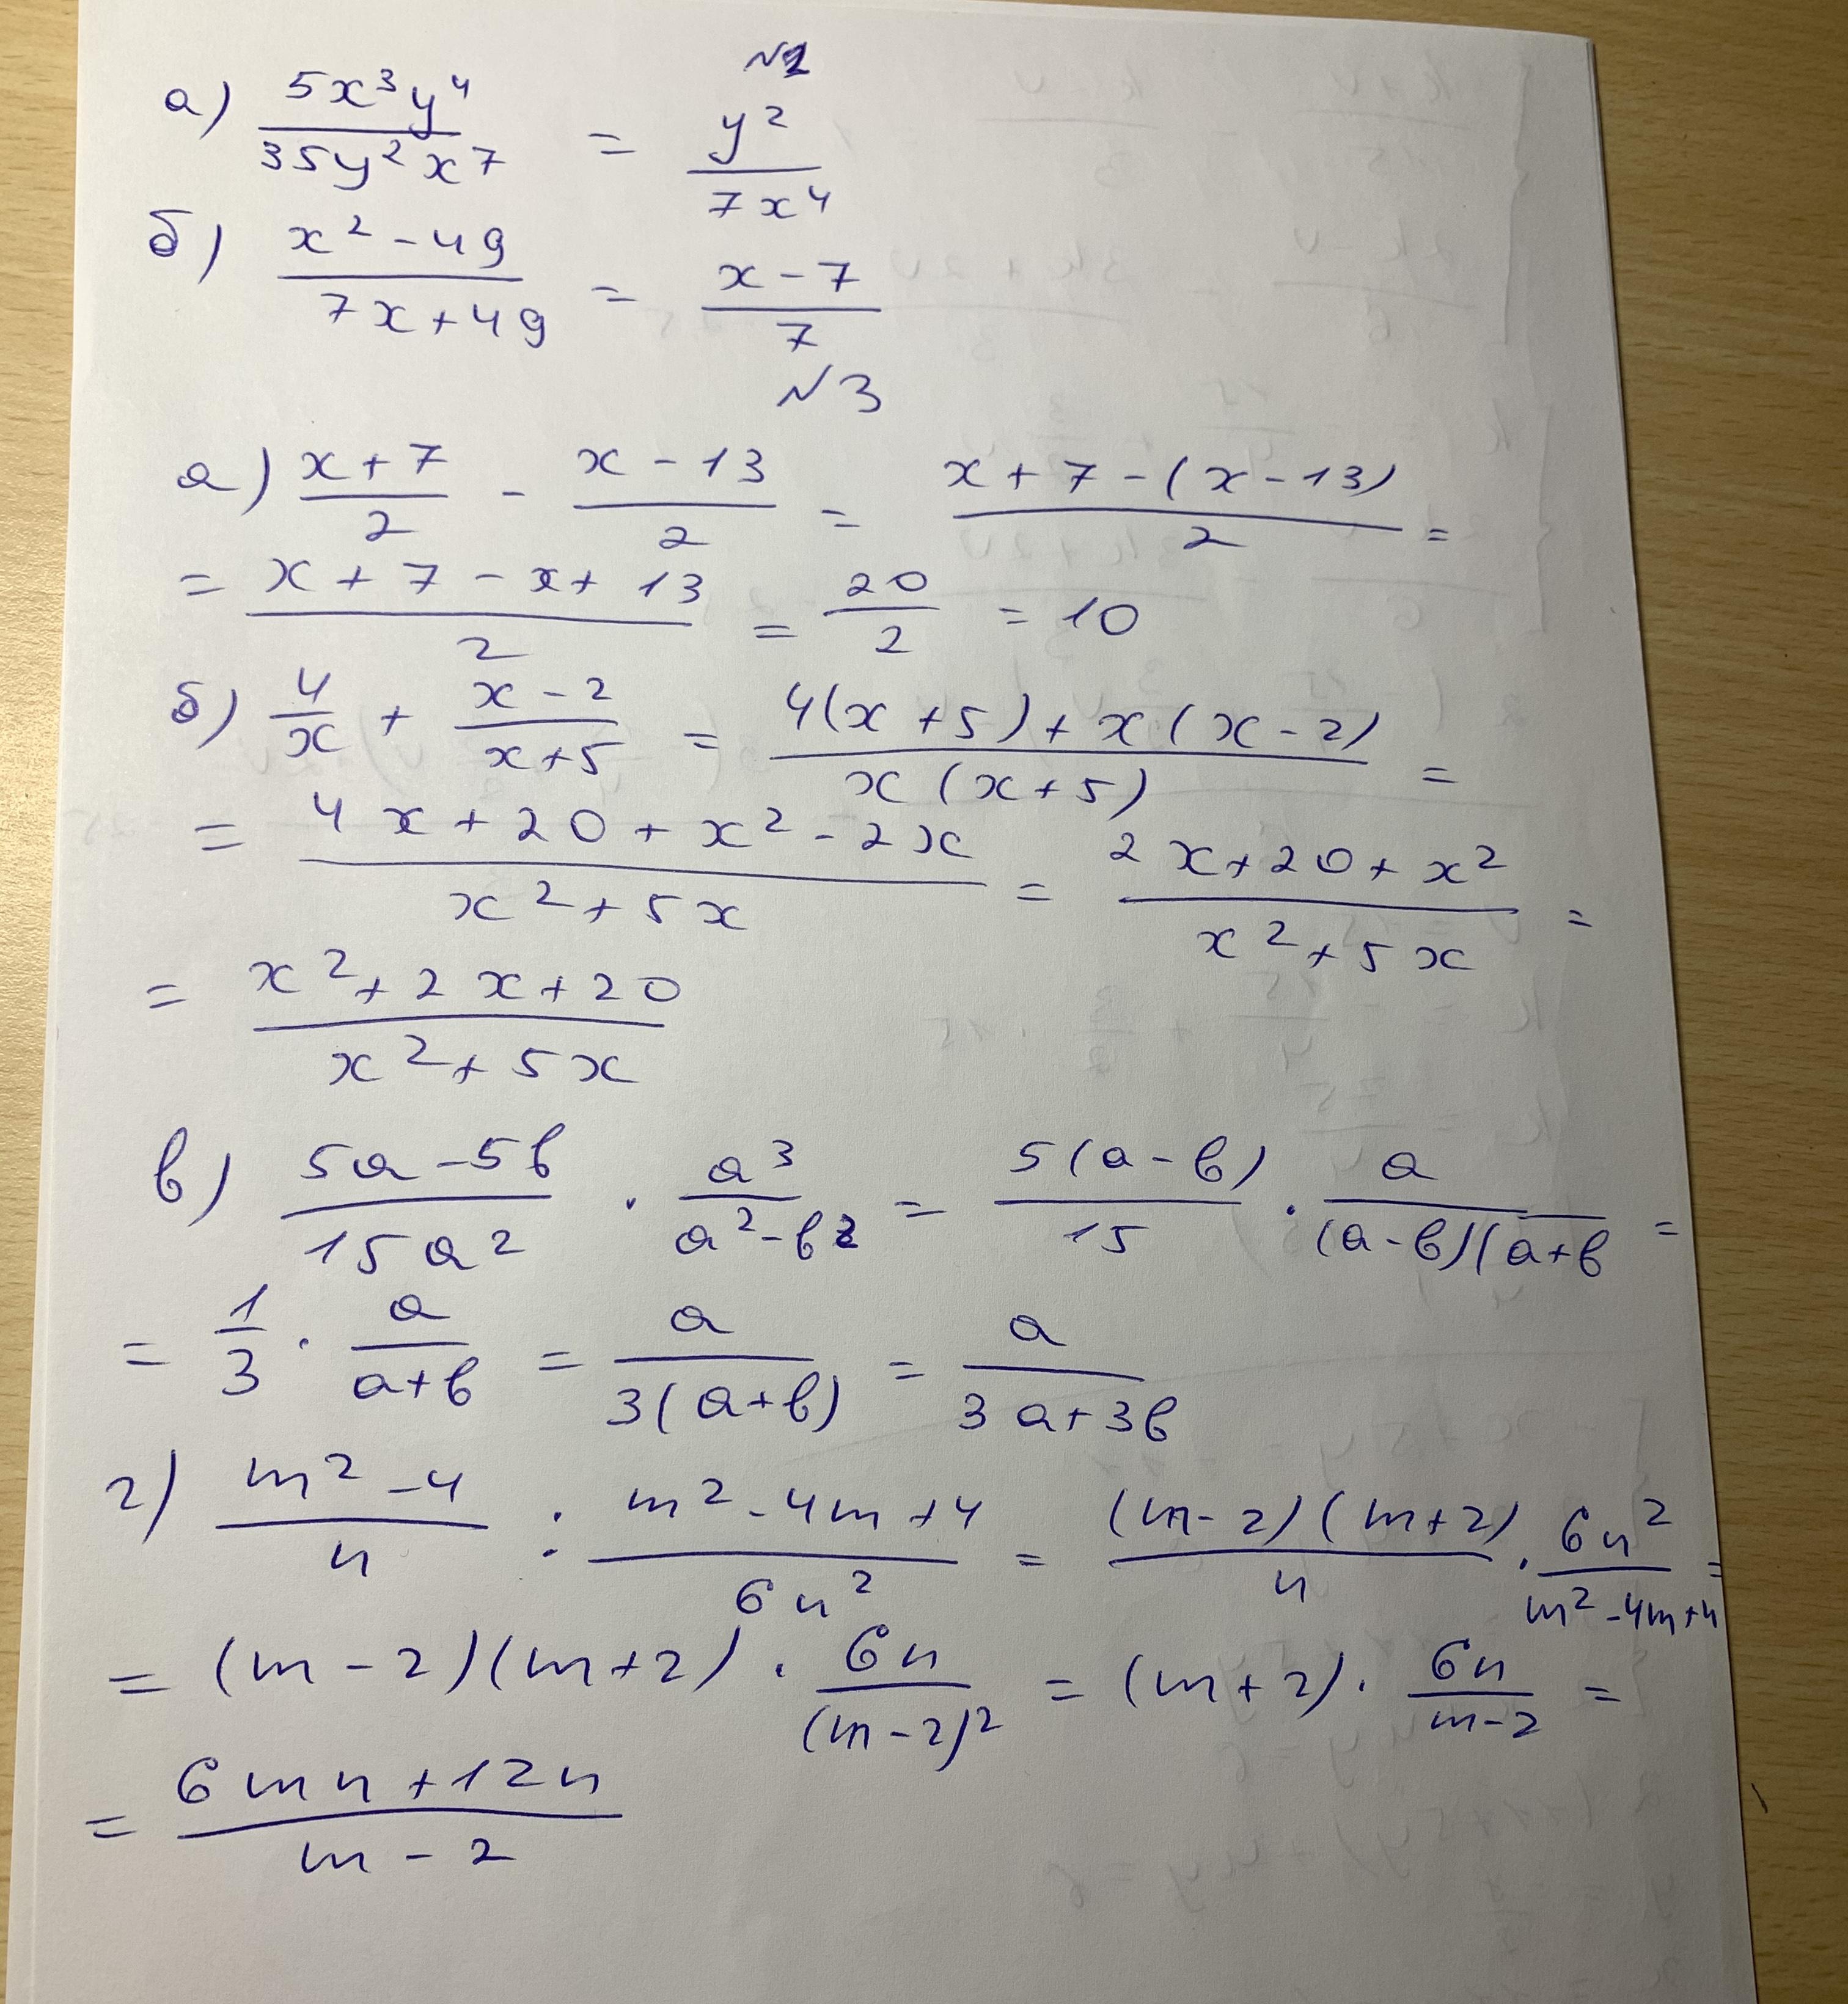 №2
а) 5x³y⁴ / 35y²x⁷ = y² / 7x⁴
б) x² - 49 / 7x + 49 = x - 7 / 7
№3
а) x + 7 / 2 - x - 13 / 2 = x + 7 - (x - 13) / 2 =
= x + 7 - x + 13 / 2 = 20 / 2 = 10
б) 4 / x + x - 2 / x + 5 = 4(x + 5) + x(x - 2) / x(x + 5) =
= 4x + 20 + x² - 2x / x² + 5x = 2x + 20 + x² / x² + 5x =
= x² + 2x + 20 / x² + 5x
в) 5a - 5b / 15a² · a³ / a² - b² = 5(a - b) / 15 · a / (a - b)(a + b =
= 1 / 3 · a / a + b = a / 3(a + b) = a / 3a + 3b
г) m² - 4 / n : m² - 4m + 4 / 6n² = (m - 2)(m + 2) / n · 6n² / m² - 4m + 4 =
= (m - 2)(m + 2) · 6n / (m - 2)² = (m + 2) · 6n / m - 2 =
= 6mn + 12n / m - 2